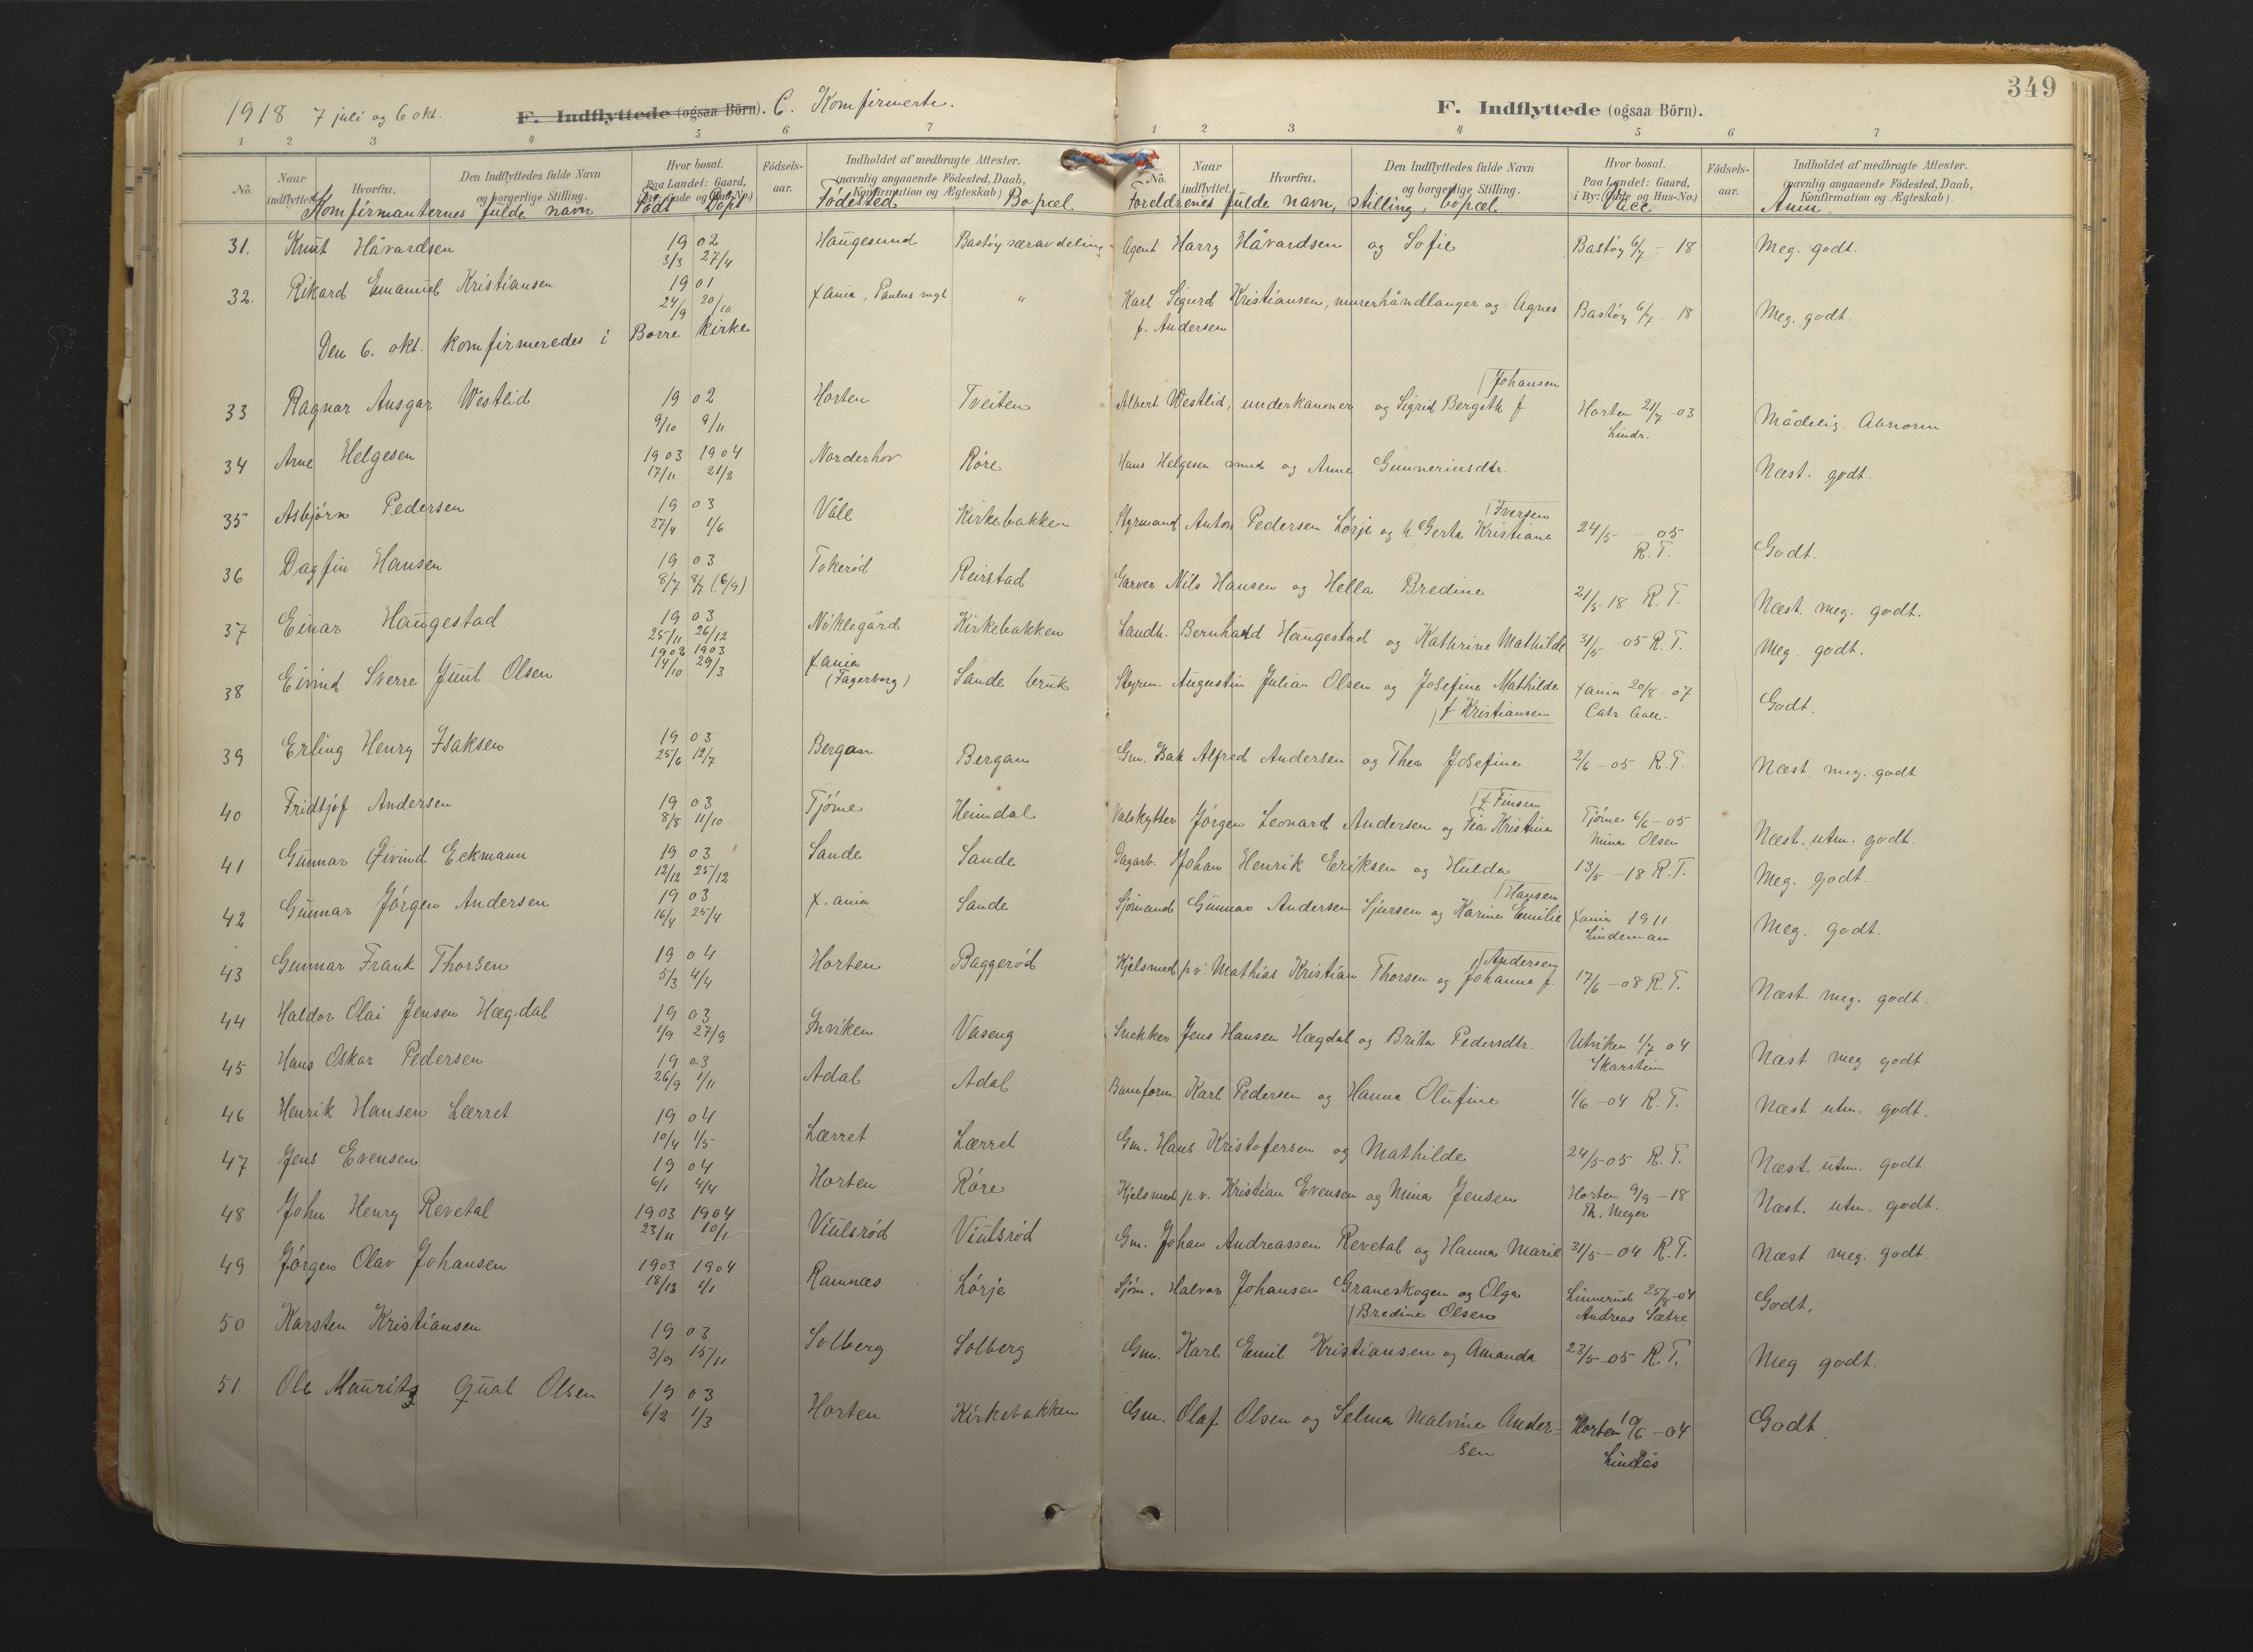 349
1918 7 juli og 6 okt. F. Indflyttede (ogsaa Börn). C. Komfirmerte.
F. Indflyttede (ogsaa Börn).
1 2 3 4 5 6 7
1 2 3 4 5 6 7
No. Naar indflyttet. Hvorfra. Den Indflyttedes fulde Navn og borgerlige Stilling. Hvor bosat. Paa Landet: Gaard, i By: (Gade og Hus-No.) Födsels-aar. Indholdet af medbragte Attester. (navnlig angaaende Födested, Daab, Konfirmation og Ægteskab)
No. Naar indflyttet. Hvorfra. Den Indflyttedes fulde Navn og borgerlige Stilling. Hvor bosat. Paa Landet: Gaard, i By: (Gade og Hus-No.) Födsels-aar. Indholdet af medbragte Attester. (navnlig angaaende Födested, Daab, Konfirmation og Ægteskab).
Komfirmanternes fulde navn Födt Döpt Födested Bopæl Foreldrenes fulde navn, stilling, bopæl Vacc. Anm.
31. Knut Håvardsen 1902 3/3 27/4 Haugesund Bastöy særavdeling Agent Harry Håvardsen og Sofie Bastöy 6/7 - 18 Meg. godt.
32. Rikard Emanuel Kristiansen 1901 24/9 20/10 Xania, Paulus mgt " Karl Sigurd Kristiansen, murerhåndlanger og Agnes Bastöy 6/7 - 18 Meg. godt.
f. Andersen
Den 6. okt. komfirmeredes i Borre kirke
33 Ragnar Ansgar Westlid 1902 9/10 9/11 Horten Tveiten Albert Westlid, underkanoner og Sigrid Bergith f Johansen Horten 21/7 -03 Lindr. Mådelig. Abnorm
34 Arne Helgesen 1903 1904 17/11 21/2 Norderhov Röre Hans Helgesen smed og Anne Gunneriusdtr. Næst. godt.
35 Asbjörn Pedersen 1903 27/4 1/6 Våle Kirkebakken Styrmand Anton Pedersen Lörje og h. Gerta Kristiane Iversen 24/5 - 05 R. T. Godt.
36 Dagfin Hansen 1903 8/7 8/7 (6/9) Tokeröd Reirstad Garver Nils Hansen og Hella Bredine 21/5 18 R. T. Næst. meg. godt.
37 Einar Haugestad 1903 25/11 26/12 Nöklegård Kirkebakken Landh. Bernhard Haugestad og Kathrine Mathilde 31/5 - 05 R. T. Meg. godt.
38 Eivind Sverre Juul Olsen 1902 1903 14/10 29/3 Xania (Fagerborg) Sande bruk Styrm. Augustin Julian Olsen og Josefine Mathilde f. Kristiansen Xania 20/8 - 07 Godt.
39 Erling Henry Isaksen 1903 25/6 12/7 Bergan Bergan Gm. Isak Alfred Andersen og Thea Josefine 2/6 - 05 R. T. Næst meg. godt
40 Fridtjof Andersen 1903 8/8 11/10 Tjöme Heimdal Valskytter Jörgen Leonard Andersen og Fia Kristina f. Finsen Tjöme 6/6 - 05 Mina Olsen Næst. utm. godt.
41 Gunnar Øivind Eckmann 1903 12/12 25/12 Sande Sande Dagarb. Johan Henrik Eriksen og Hulda 13/5 - 18 R. T. Meg. godt.
42 Gunnar Jörgen Andersen 1903 16/4 25/4 X.ania Sande Sjömand Gunnar Andersen Sjursen og Karine Emilie Hansen Xania 1911 Lindeman Meg. godt.
43 Gunnar Frank Thorsen 1904 5/3 4/4 Horten Baggeröd Kjelsmed p.v. Mathias Kristian Thorsen og Johanne f. Andersen 17/6 - 08 R. T. Næst. meg. godt.
44 Haldor Olai Jensen Hægdal 1903 1/9 27/9 Inviken Vaseng Snekker Jens Hansen Hægdal og Brita Pedersdtr. Utviken 1/7 04 Skarstein Næst meg godt
45 Hans Oskar Pedersen 1903 26/9 1/11 Adal Adal Baneform. Karl Pedersen og Hanna Olufine 1/6 - 04 R. T. Næst utm. godt.
46 Henrik Hansen Lærret 1904 10/4 1/5 Lærret Lærret Gm. Hans Kristofersen og Mathilde 24/5 05 R. T. Næst. utm. godt
47 Jens Evensen 1904 6/1 4/4 Horten Röre Kjelsmed p.v. Kristian Evensen og Mina Jensen Horten 9/9 - 18 Th. Meyer Næst. utm. godt.
48 John Henry Revetal 1903 1904 23/11 10/1 Viulsröd Viulsröd Gm. Johan Andreassen Revetal og Hanna Marie 31/5 - 04 R. T. Næst meg. godt.
49 Jörgen Olav Johansen 1903 1904 18/12 1/1 Ramnæs Lörje Sjöm. Halvor Johansen Graneskogen og Olga Bredine Olsen Linnerud 25/8 - 04 Andreas Sætre Godt.
50 Karsten Kristiansen 1903 3/9 15/11 Solberg Solberg Gm. Karl Emil Kristiansen og Amanda 23/5 05 R. T. Meg godt.
51. Ole Mauritz Qual Olsen 1903 6/2 1/3 Horten Kirkebakken Gm. Olaf Olsen og Selma Malvine Ander-
sen Horten 10/6 - 04 Lindås Godt.